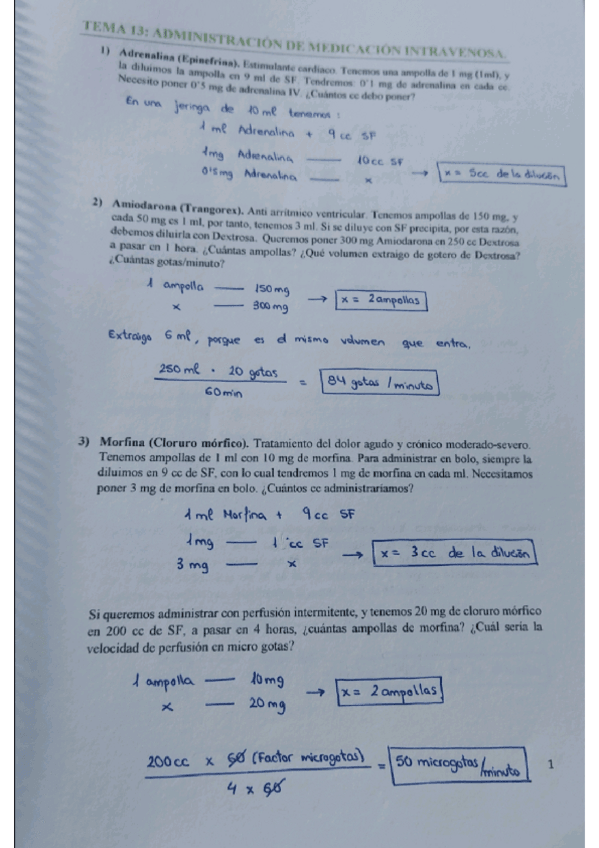 TEMA 13: ADMINISTRACIÓN DE MEDICACIÓN INTRAVENOSA.
1) Adrenalina (Epinefrina). Estimulante cardiaco. Tenemos una ampolla de 1 mg (1ml), y
la diluimos la ampolla en 9 ml de SF. Tendremos 0'1 mg de adrenalina en cada cc.
Necesito poner 0'5 mg de adrenalina IV. ¿Cuántos cc debo poner?
En una jeringa de 10 ml tenemos:
1 ml Adrenalina + 9 cc SF
1mg Adrenalina — 10cc SF
0'5mg Adrenalina — x → x = 5cc de la dilución
2) Amiodarona (Trangorex). Anti arrítmico ventricular. Tenemos ampollas de 150 mg, y
cada 50 mg es 1 ml, por tanto, tenemos 3 ml. Si se diluye con SF precipita, por esta razón,
debemos diluirla con Dextrosa. Queremos poner 300 mg Amiodarona en 250 cc Dextrosa
a pasar en 1 hora. ¿Cuántas ampollas? ¿Qué volumen extraigo de gotero de Dextrosa?
¿Cuántas gotas/minuto?
1 ampolla — 150mg
x — 300mg → x = 2 ampollas
Extraigo 6 ml, porque es el mismo volumen que entra.
250 ml · 20 gotas
60min
= 84 gotas / minuto
3) Morfina (Cloruro mórfico). Tratamiento del dolor agudo y crónico moderado-severo.
Tenemos ampollas de 1 ml con 10 mg de morfina. Para administrar en bolo, siempre la
diluimos en 9 cc de SF, con lo cual tendremos 1 mg de morfina en cada ml. Necesitamos
poner 3 mg de morfina en bolo. ¿Cuántos cc administraríamos?
1 ml Morfina + 9 cc SF
1mg — 1 cc SF
3 mg — x → x = 3 cc de la dilución
Si queremos administrar con perfusión intermitente, y tenemos 20 mg de cloruro mórfico
en 200 cc de SF, a pasar en 4 horas, ¿cuántas ampollas de morfina? ¿Cuál sería la
velocidad de perfusión en micro gotas?
1 ampolla — 10mg
x — 20mg → x = 2 ampollas
200cc x 60 (Factor microgotas)
4 x 60
= 50 microgotas/minuto
1